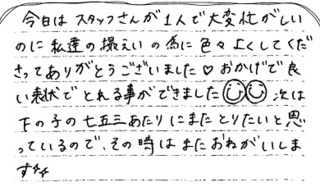 今日はスタッフさんが1人で大変忙がしい
のに私達の撮えいの為に色々よくしてくだ
さってありがとうございました♡おかげで良
い表状でとれる事ができました☺☺次は
下の子の七五三あたりにまたとりたいと思
っているので、その時はまたおねがいしま
す